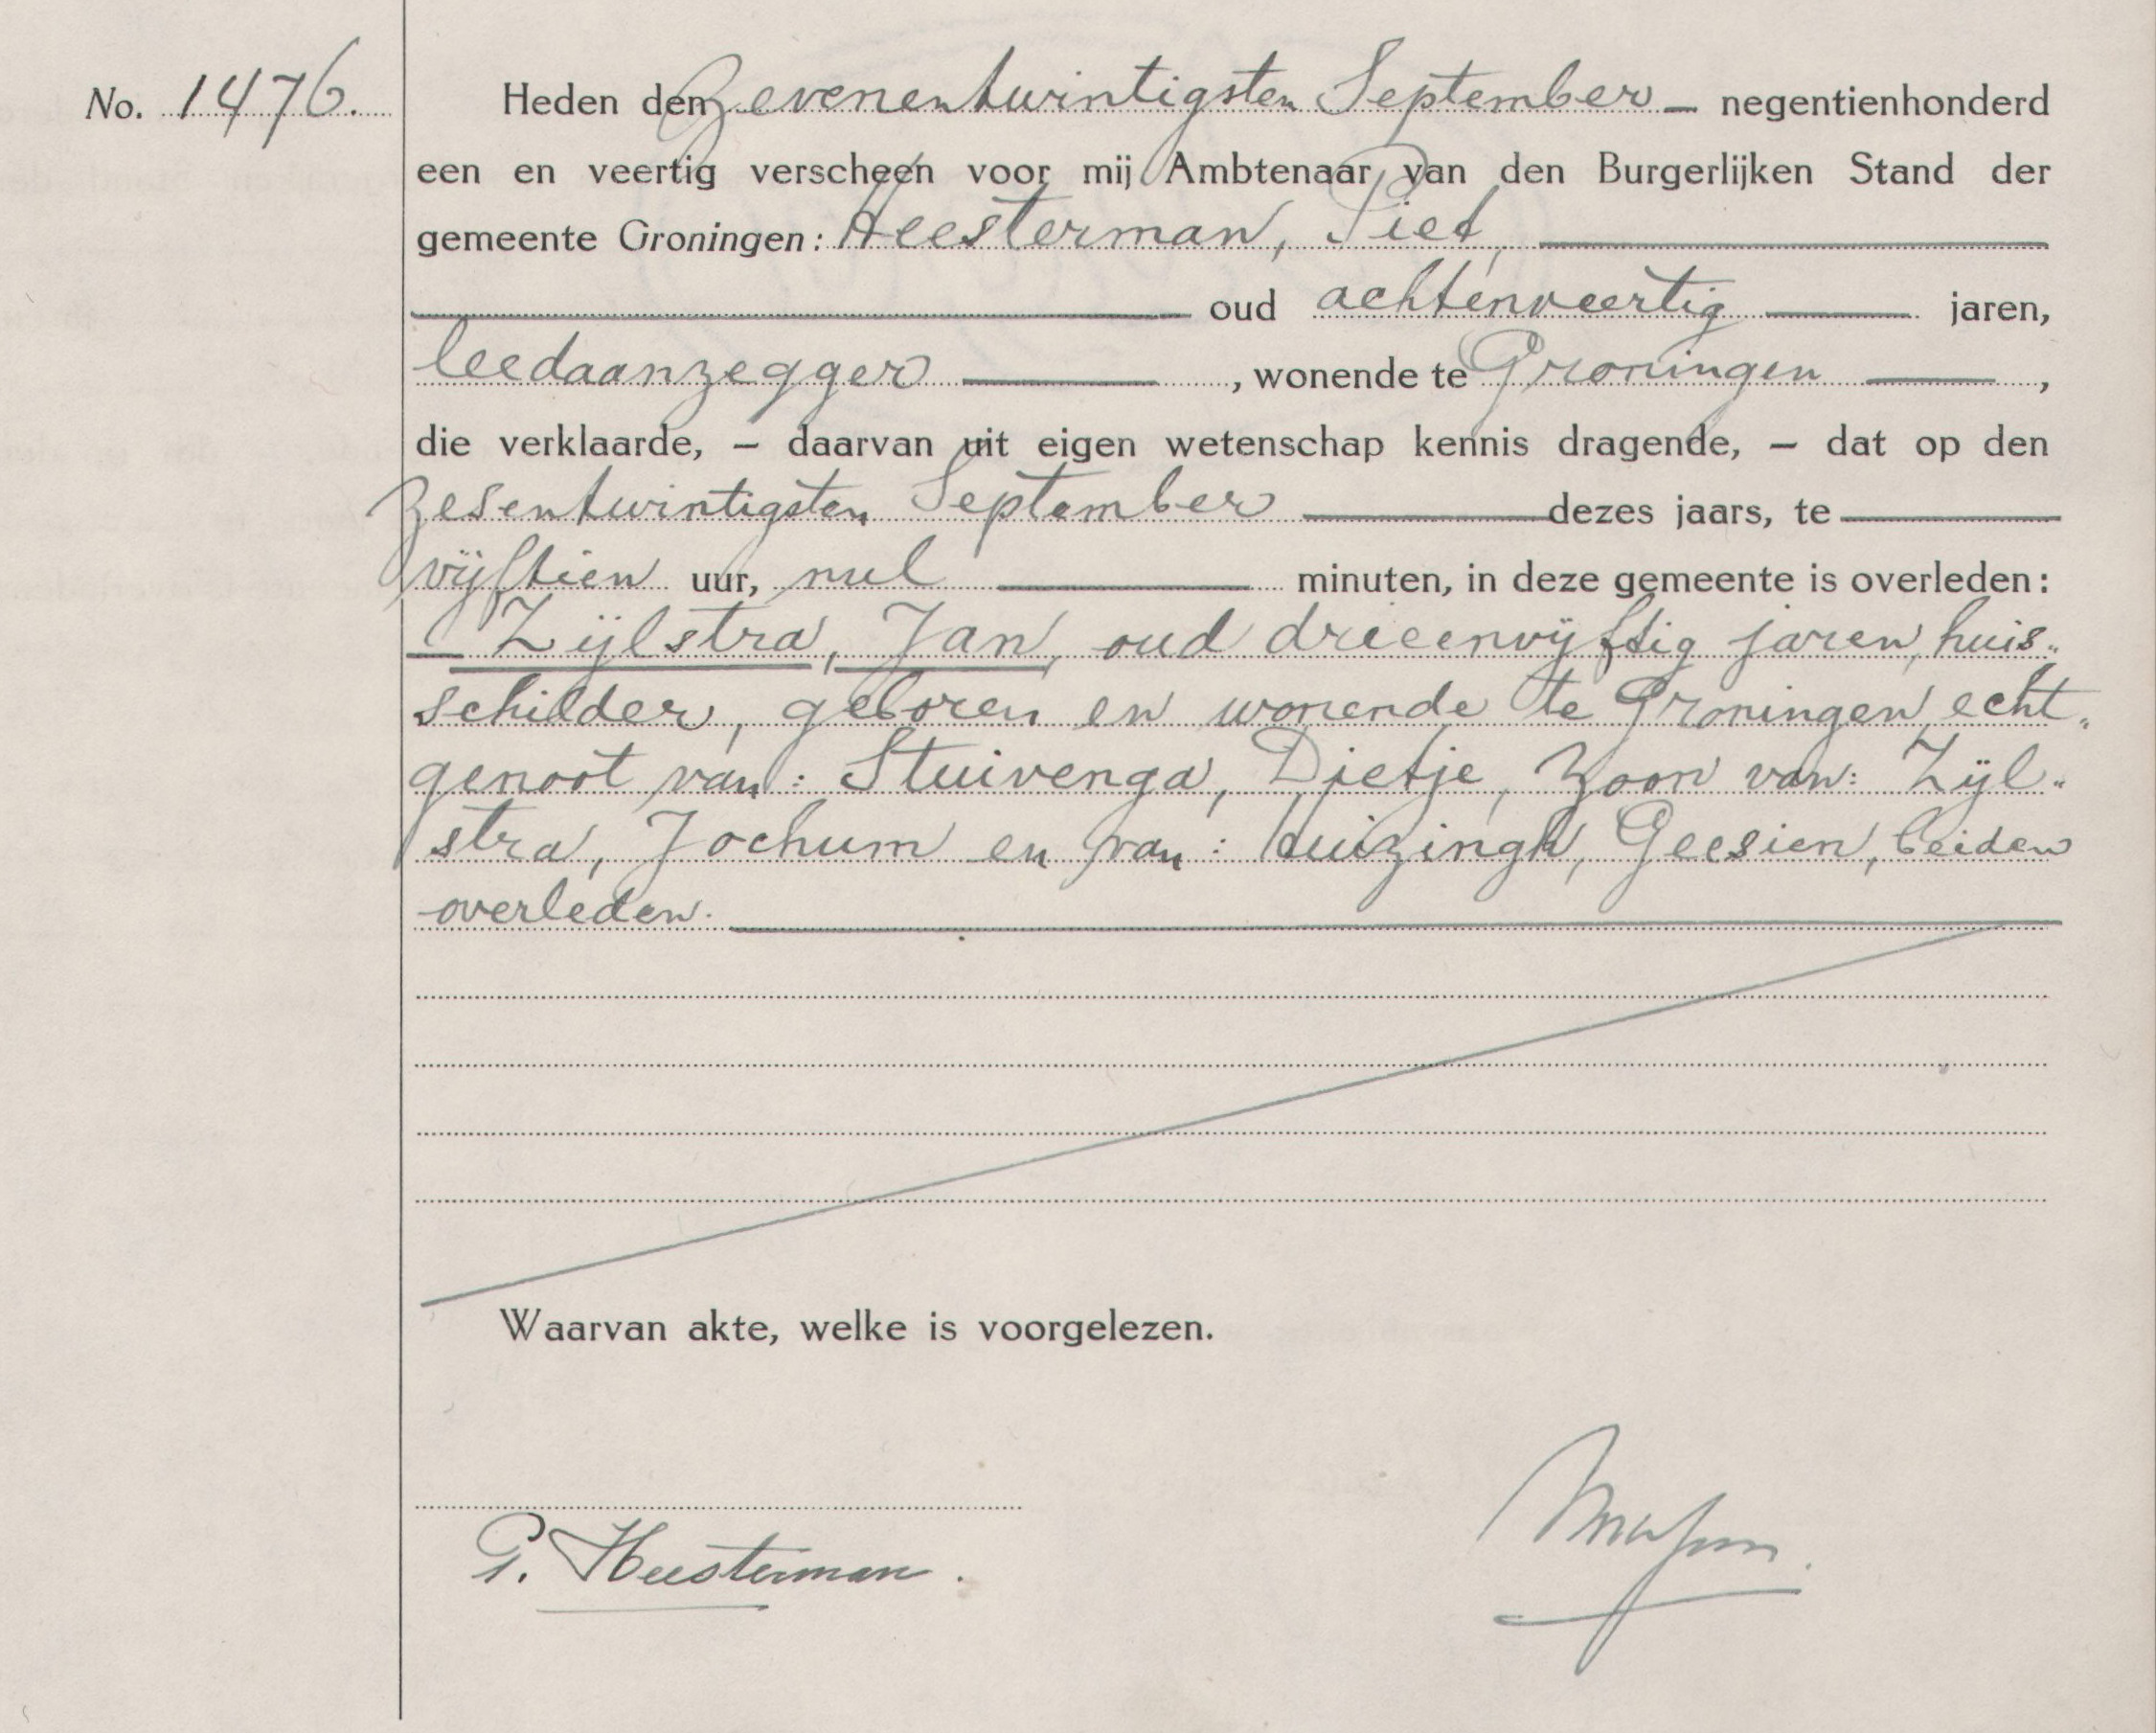 No. 1476.
Heden den zevenentwintigsten September — negentienhonderd
een en veertig verscheen voor mij Ambtenaar van den Burgerlijken Stand der
gemeente Groningen: Heesterman, Piet,
oud achtenveertig jaren,
leedaanzegger, wonende te Groningen,
die verklaarde, — daarvan uit eigen wetenschap kennis dragende, — dat op den
zesentwintigsten September dezes jaars, te
vijftien uur, nul minuten, in deze gemeente is overleden:
Zijlstra, Jan, oud drieenvijftig jaren, huis„
schilder, geboren en wonende te Groningen, echt„
genoot van: Stuivenga, Dietje, zoon van: Zijl„
stra, Jochum en van: Huizingh, Geesien, beiden
overleden.
Waarvan akte, welke is voorgelezen.
P. Heesterman.